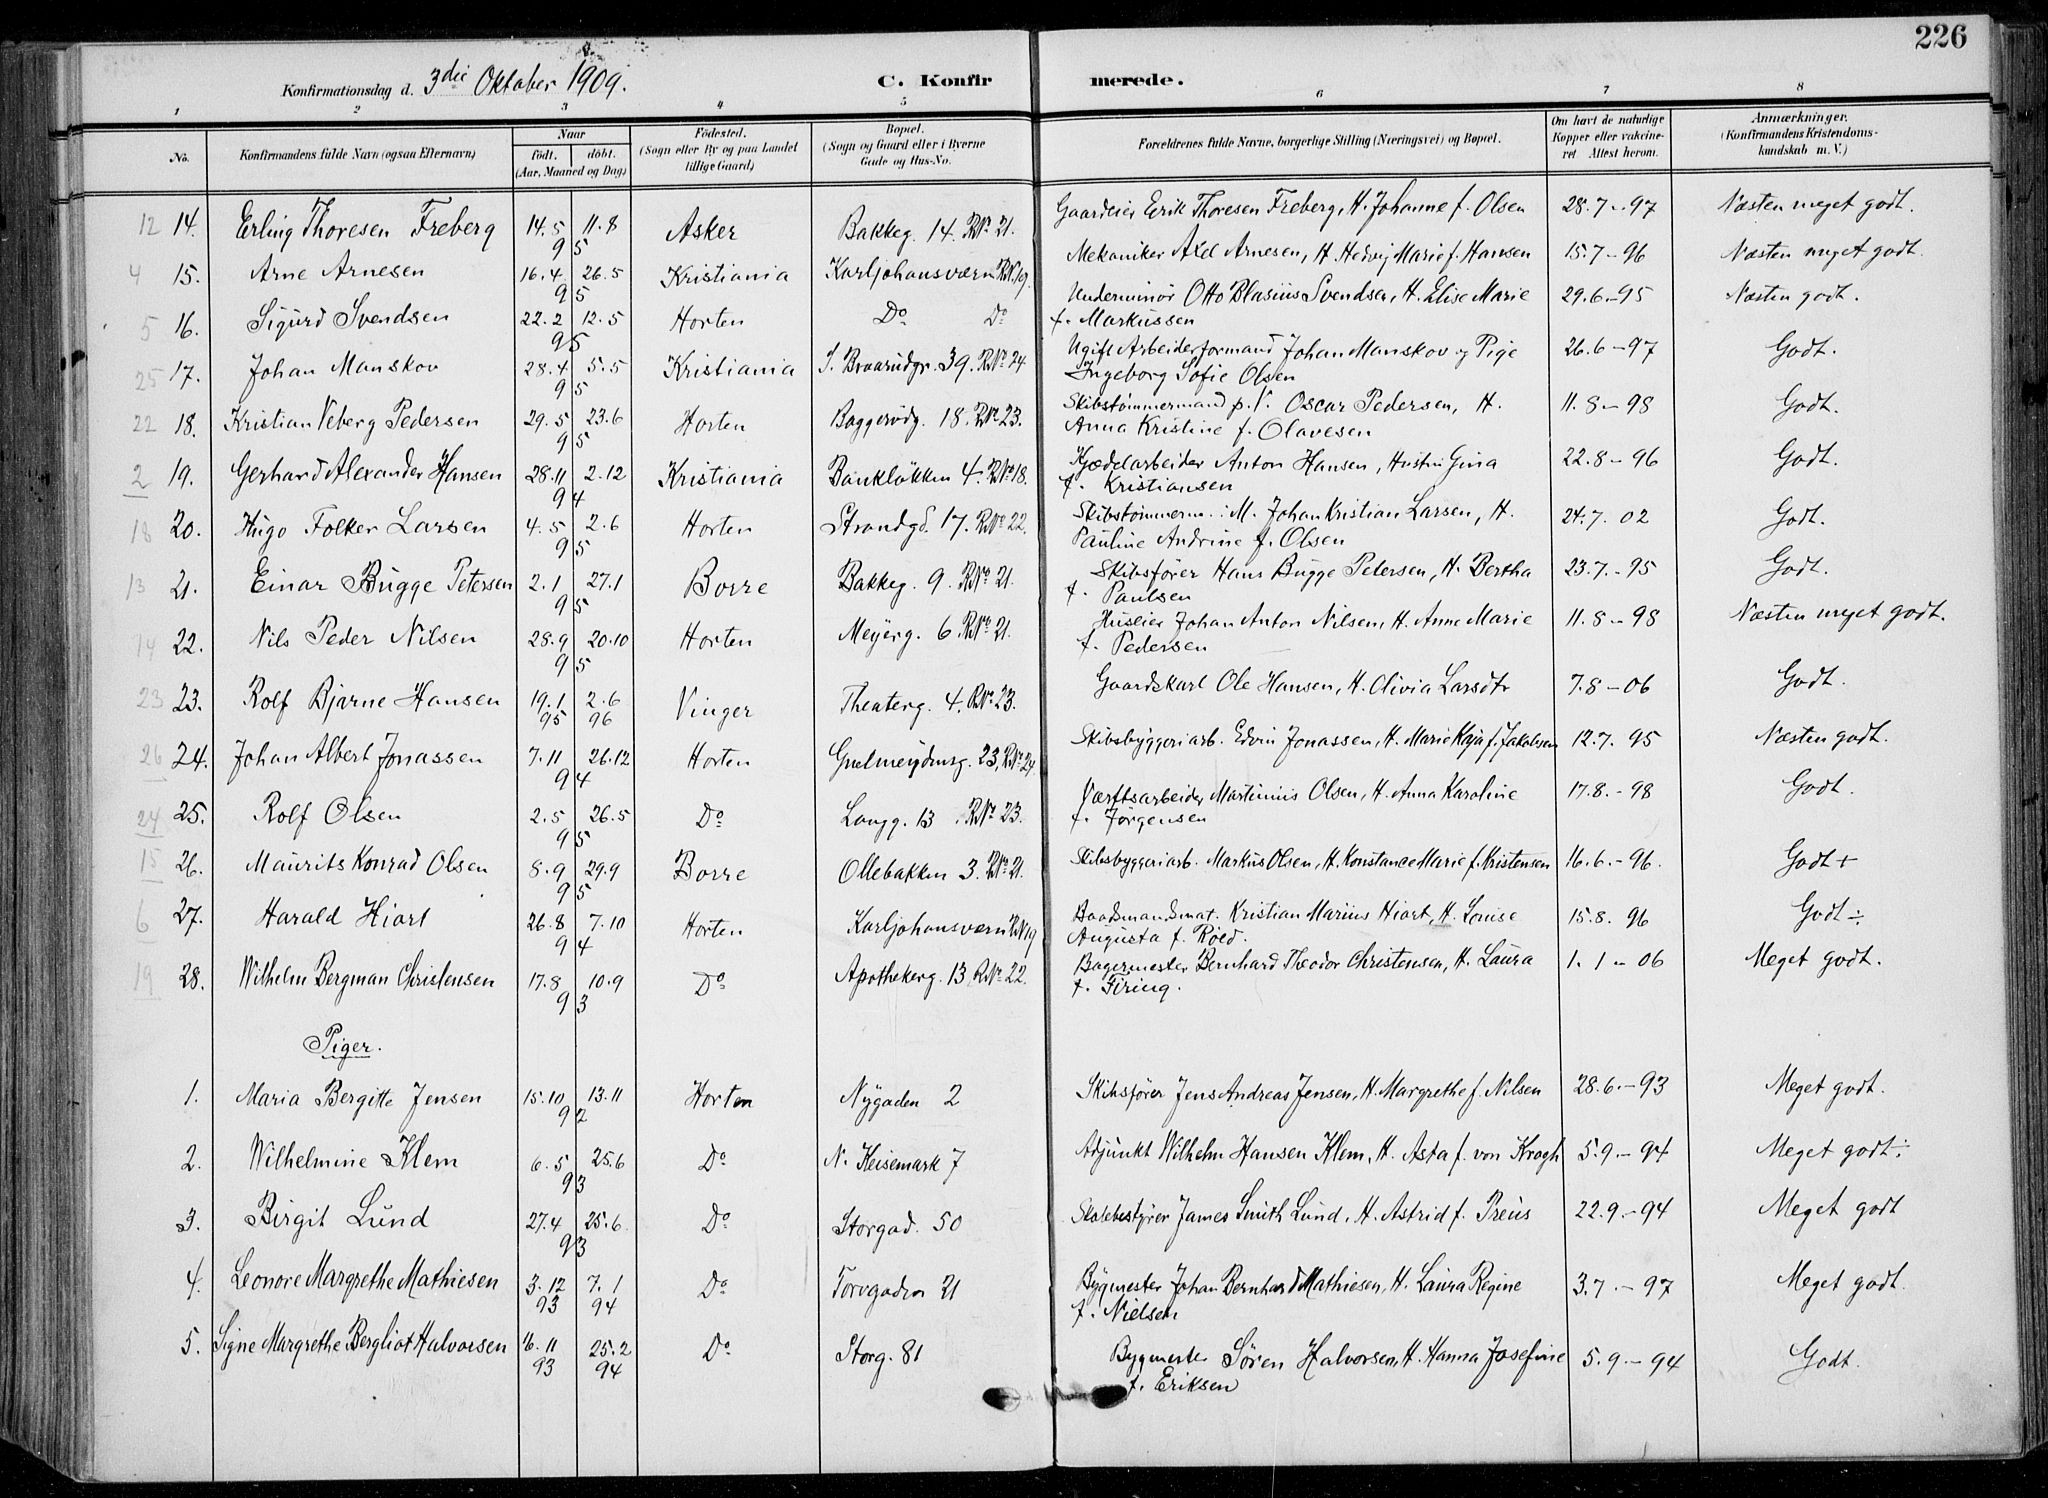 226
Konfirmationsdag d. 3die Oktober 1909. C. Konfir merede.
1 2 3 4 5 6 7 8
No. Konfirmandens fulde Navn (ogsaa Efternavn) Naar födt. döbt. (Aar, Maaned og Dag) Födested. (Sogn eller By og paa Landet tillige Gaard) Bopæl. (Sogn og Gaard eller i Byerne Gade og Hus-No. Forældrenes fulde Navne, borgerlige Stilling (Næringsvei) og Bopæl. Om havt de naturlige Kopper eller vakcineret. Attest herom. Anmærkninger. (Konfirmandens Kristendomskundskab m. V.)
12 14. Erling Thoresen Freberg 14.5 11.8 95 Asker Bakkeg. 14. RNo 21. Gaardeier Erik Thoresen Freberg, H. Johanne f. Olsen 28.7.-97 Næsten meget godt.
4 15. Arne Arnesen 16.4 26.5 95 Kristiania Karljohansværn RN. 19. Mekaniker Axel Arnesen, H. Hedvig Marie f. Hansen 15.7-96 Næsten meget godt.
5 16. Sigurd Svendsen 22.2 12.5 95 Horten Do Do Underminör Otto Blasius Svendsen, H. Elise Marie
f. Markussen 29.6.-95 Næsten godt.
25 17. Johan Manskov 28.4 5.5 95 Kristiania S. Braarudgr. 39. RNo 24 Ugift Arbeiderformand Johan Manskov og Pige
Ingeborg Sofie Olsen 26.6-97 Godt.
22 18. Kristian Veberg Pedersen 29.5 23.6 95 Horten Baggerödg. 18. RNo 23. Skibstömmermand p.V. Oscar Pedersen, H.
Anna Kristine f. Olavesen 11.8-98 Godt.
2 19. Gerhard Alexander Hansen 28.11 2.12 94 Kristiania Banklökken 4. RNo 18. Kjedelarbeider Anton Hansen, Hustru Gina
f. Kristiansen 22.8-96 Godt.
18 20. Hugo Folker Larsen 4.5 2.6 95 Horten Strandgd. 17. RNo 22. Skibstömmerm. M. Johan Kristian Larsen, H.
Pauline Andrine f. Olsen 24.7. 02 Godt.
13 21. Einar Bugge Petersen 2.1 27.1 95 Borre Bakkeg. 9. RNo 21. Skibsförer Hans Bugge Petersen, H. Bertha
f. Paulsen 23.7.-95 Godt.
14 22. Nils Peder Nilsen 28.9 20.10 95 Horten Meyerg. 6 RNo 21. Huseier Johan Anton Nilsen, H. Anne Marie
f. Pedersen 11.8-98 Næsten meget godt.
23 23. Rolf Bjarne Hansen 19.1 95 2.6 96 Vinger Theaterg. 4. RNo 23. Gaardskarl Ole Hansen, H. Olivia Larsdtr 7.8-06 Godt.
26 24. Johan Albert Jonassen 7.11 26.12 94 Horten 23, RNo 24. Skibsbyggeriarb. Edvin Jonassen, H. Marie Kaja f. Jakobsen 12.7. 95 Næsten godt.
24 25. Rolf Olsen 2.5 26.5 95 Do Langg. 13. RNo 23. Værftsarbeider Martinius Olsen, H. Anna Karoline
f. Jörgensen 17.8.-98 Godt.
15 26. Maurits Konrad Olsen 8.9 29.9 95 Borre Ollebakken 3. RNo 21. Skibsbyggeriarb. Markus Olsen, H. Konstance Marie f. Kristensen 16.6.-96. Godt +
6 27. Harald Hiort 26.8 7.10 94 Horten Karljohansværn RN 19 Baadsmandsmat. Kristian Marius Hiort, H. Louise
Augusta f. Röed. 15.8. 96 Godt ÷
19 28. Wilhelm Bergman Christensen 17.8 10.9 93 Do Apothekerg. 13 RNo 22. Bagermester Bernhard Theodor Christensen, H. Laura
f. Firing. 1.1-06 Meget godt.
Piger.
1. Maria Bergitte Jensen 15.10 13.11 92 Horten Nygaden 2 Skibsförer Jens Andreas Jensen, H. Margrethe f. Nilsen 28.6.-93 Meget godt.
2. Wilhelmine Klem 6.5 25.6 93 Do N. Keisemark 7 Adjunkt Wilhelm Hansen Klem, H. Asta f. von Krogh 5.9-94 Meget godt ÷
3. Birgit Lund 27.4 25.6. 93 Do Storgad. 50 Skolebestyrer James Smith Lund, H. Astrid f. Preus 22.9.-94 Meget godt
4. Leonore Margrethe Mathiesen 3.12 93 7.1 94 Do Torvgaden 21 Bygmester Johan Bernhard Mathiesen, H. Laura Regine
f. Nielsen 3.7.-97 Meget godt.
5. Signe Margrethe Bergliot Halvorsen 16.11 93 25.2 94 Do Storg. 81 Bygmester Sören Halvorsen, H. Hanna Josefine
f. Eriksen 5.9.-94 Godt.